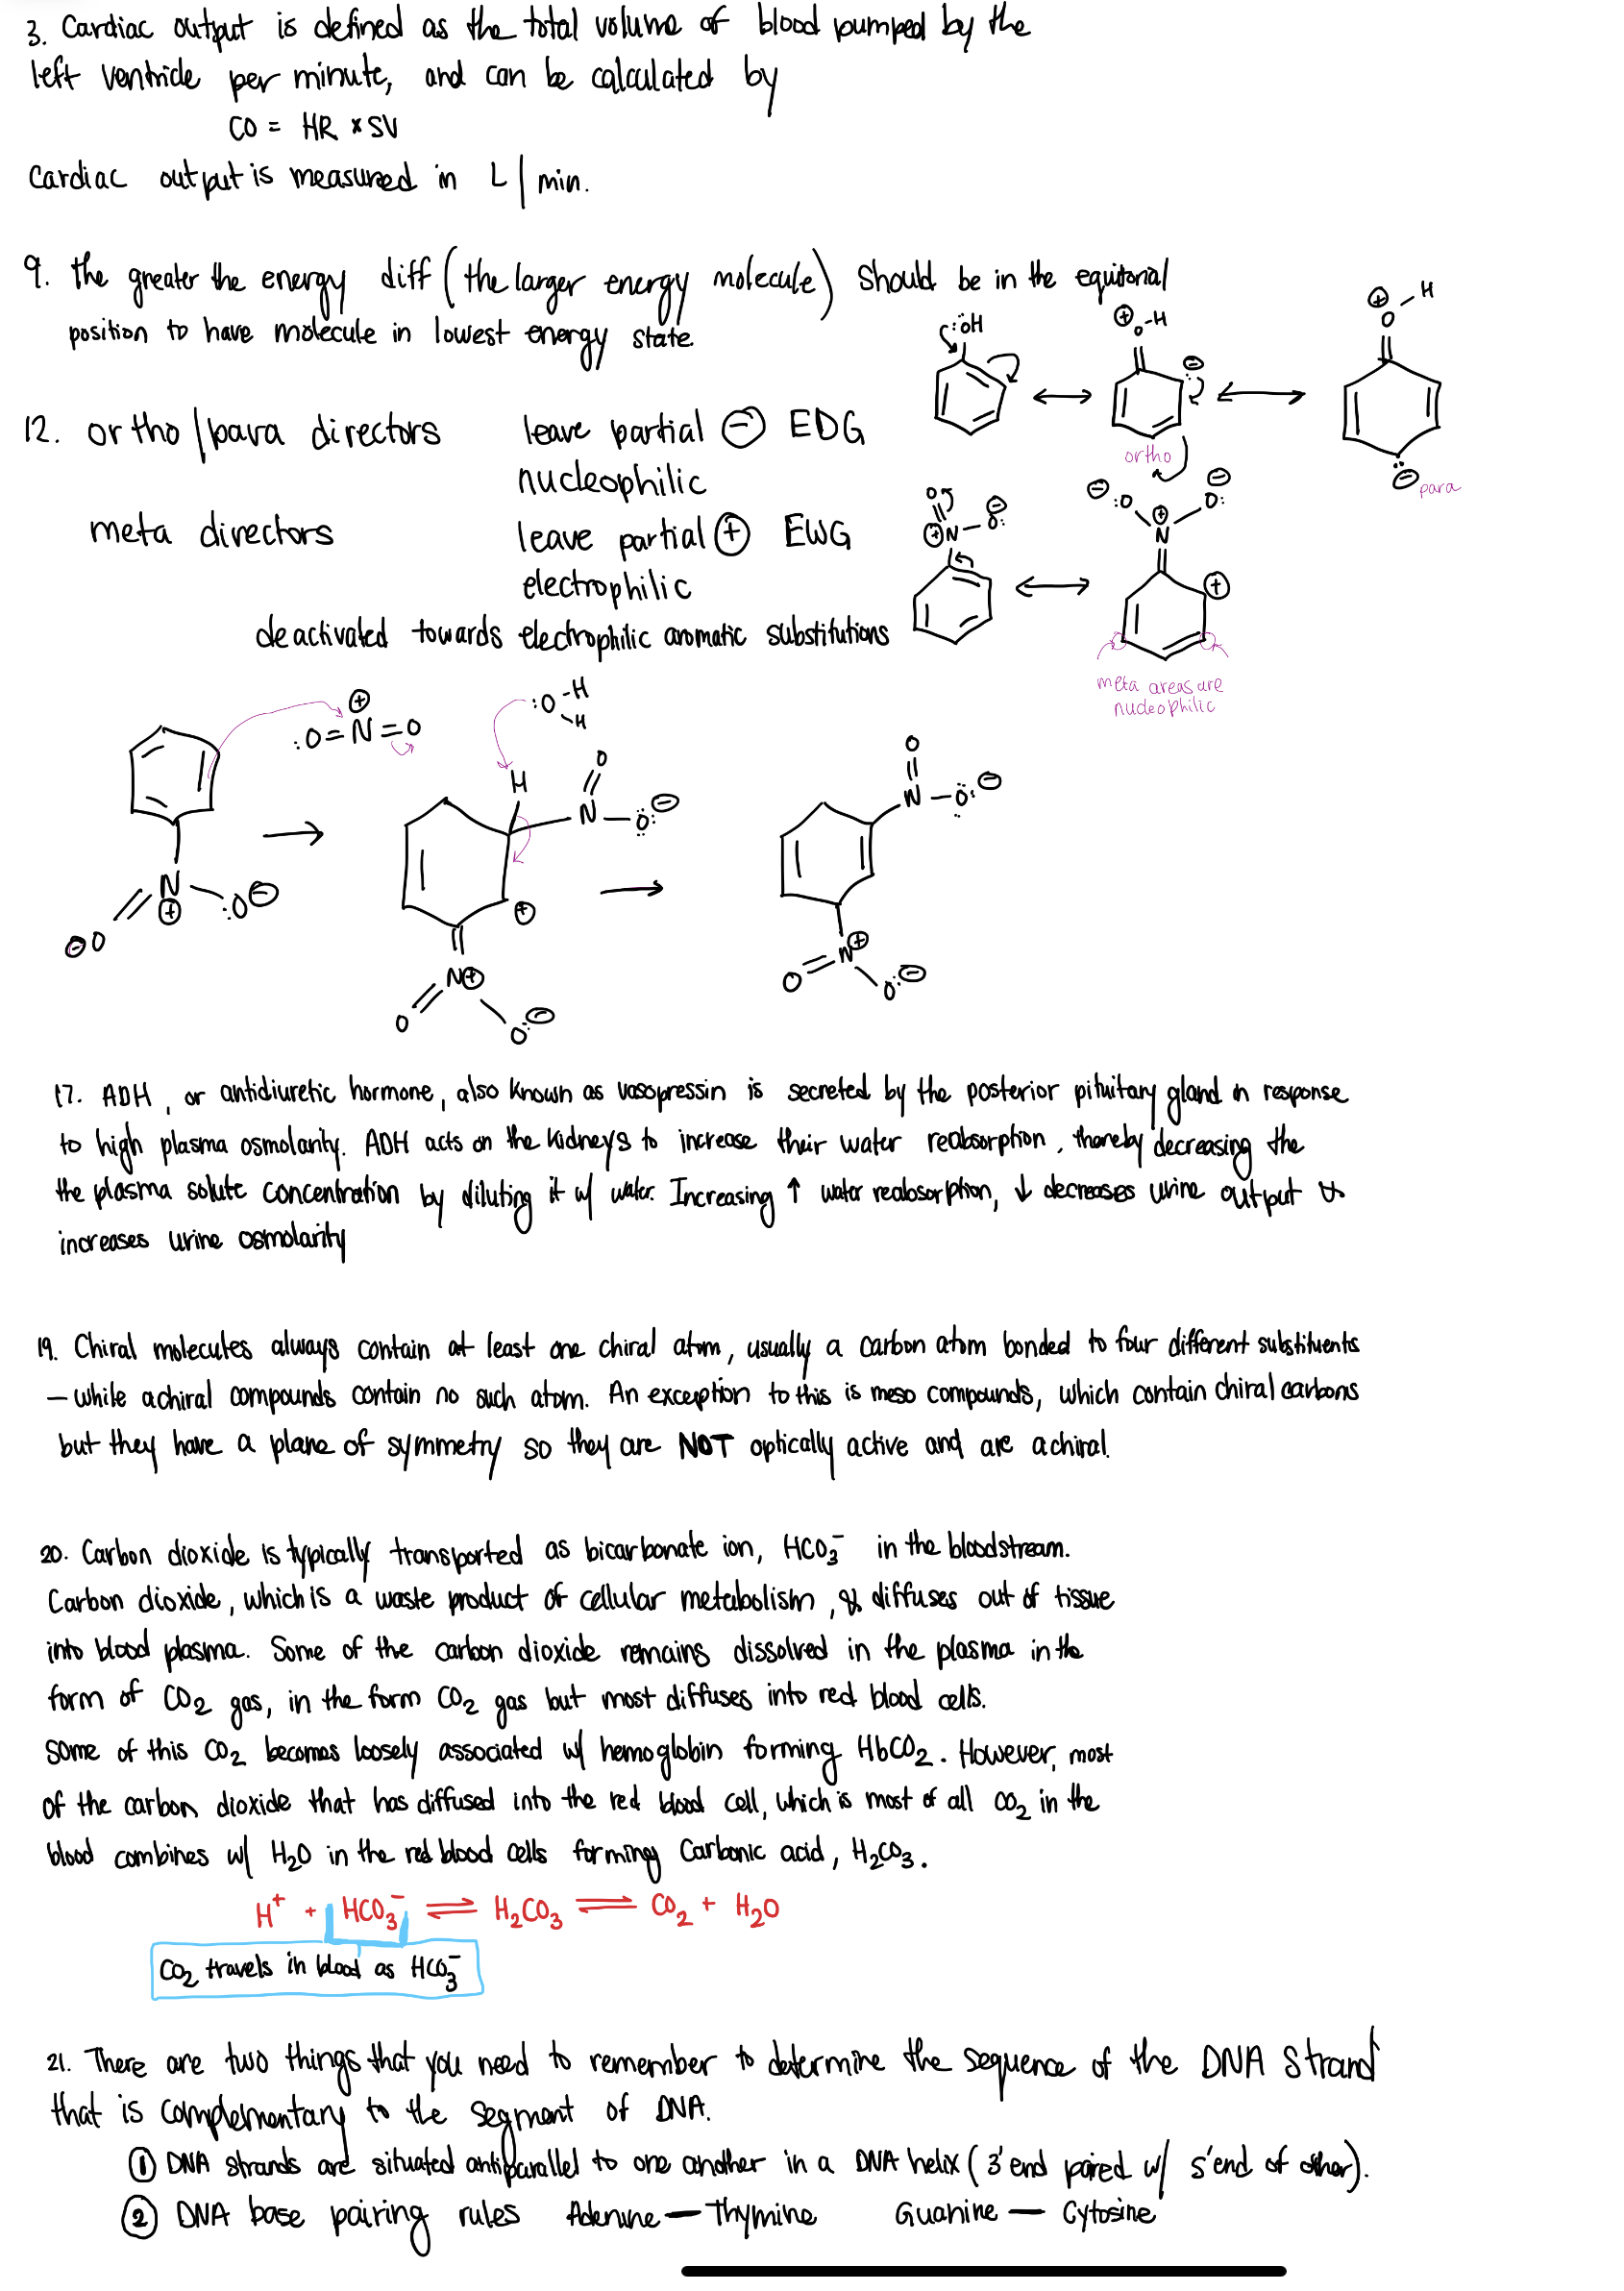 3. Cardiac output is defined as the total volume of blood pumped by the
left ventricle per minute, and can be calculated by
CO = HR × SV
Cardiac output is measured in L/min.
9. the greater the energy diff (the larger energy molecule) should be in the equitorial
position to have molecule in lowest energy state.
:OH
⊕ O-H
⊖
⊕ O-H
ortho
⊖ para
12. ortho/para directors leave partial ⊖ EDG
nucleophilic
meta directors leave partial ⊕ EWG
electrophilic
deactivated towards electrophilic aromatic substitutions
O
⊕N-O:⊖
⊖:O N⊕ O:⊖
⊕
meta areas are
nucleophilic
:O=N⊕=O
:O-H
H
H
O
N-O:⊖
O
N-O:⊖
N⊕
⊖O :O⊖
⊕
N⊕
O O:⊖
N⊕
O O:⊖
17. ADH, or antidiuretic hormone, also known as vasopressin is secreted by the posterior pituitary gland in response
to high plasma osmolarity. ADH acts on the kidneys to increase their water reabsorption, thereby decreasing the
the plasma solute concentration by diluting it w/ water. Increasing ↑ water reabsorption, ↓ decreases urine output &
increases urine osmolarity
19. Chiral molecules always contain at least one chiral atom, usually a carbon atom bonded to four different substituents
— while achiral compounds contain no such atom. An exception to this is meso compounds, which contain chiral carbons
but they have a plane of symmetry so they are NOT optically active and are achiral.
20. Carbon dioxide is typically transported as bicarbonate ion, HCO₃⁻ in the bloodstream.
Carbon dioxide, which is a waste product of cellular metabolism, diffuses out of tissue
into blood plasma. Some of the carbon dioxide remains dissolved in the plasma in the
form of CO₂ gas, in the form CO₂ gas but most diffuses into red blood cells.
Some of this CO₂ becomes loosely associated w/ hemoglobin forming HbCO₂. However, most
of the carbon dioxide that has diffused into the red blood cell, which is most of all CO₂ in the
blood combines w/ H₂O in the red blood cells forming Carbonic acid, H₂CO₃.
H⁺ + HCO₃⁻ ⇌ H₂CO₃ ⇌ CO₂ + H₂O
CO₂ travels in blood as HCO₃⁻
21. There are two things that you need to remember to determine the sequence of the DNA strand
that is complementary to the segment of DNA.
① DNA strands are situated antiparallel to one another in a DNA helix (3' end paired w/ 5' end of other).
② DNA base pairing rules Adenine — Thymine Guanine — Cytosine